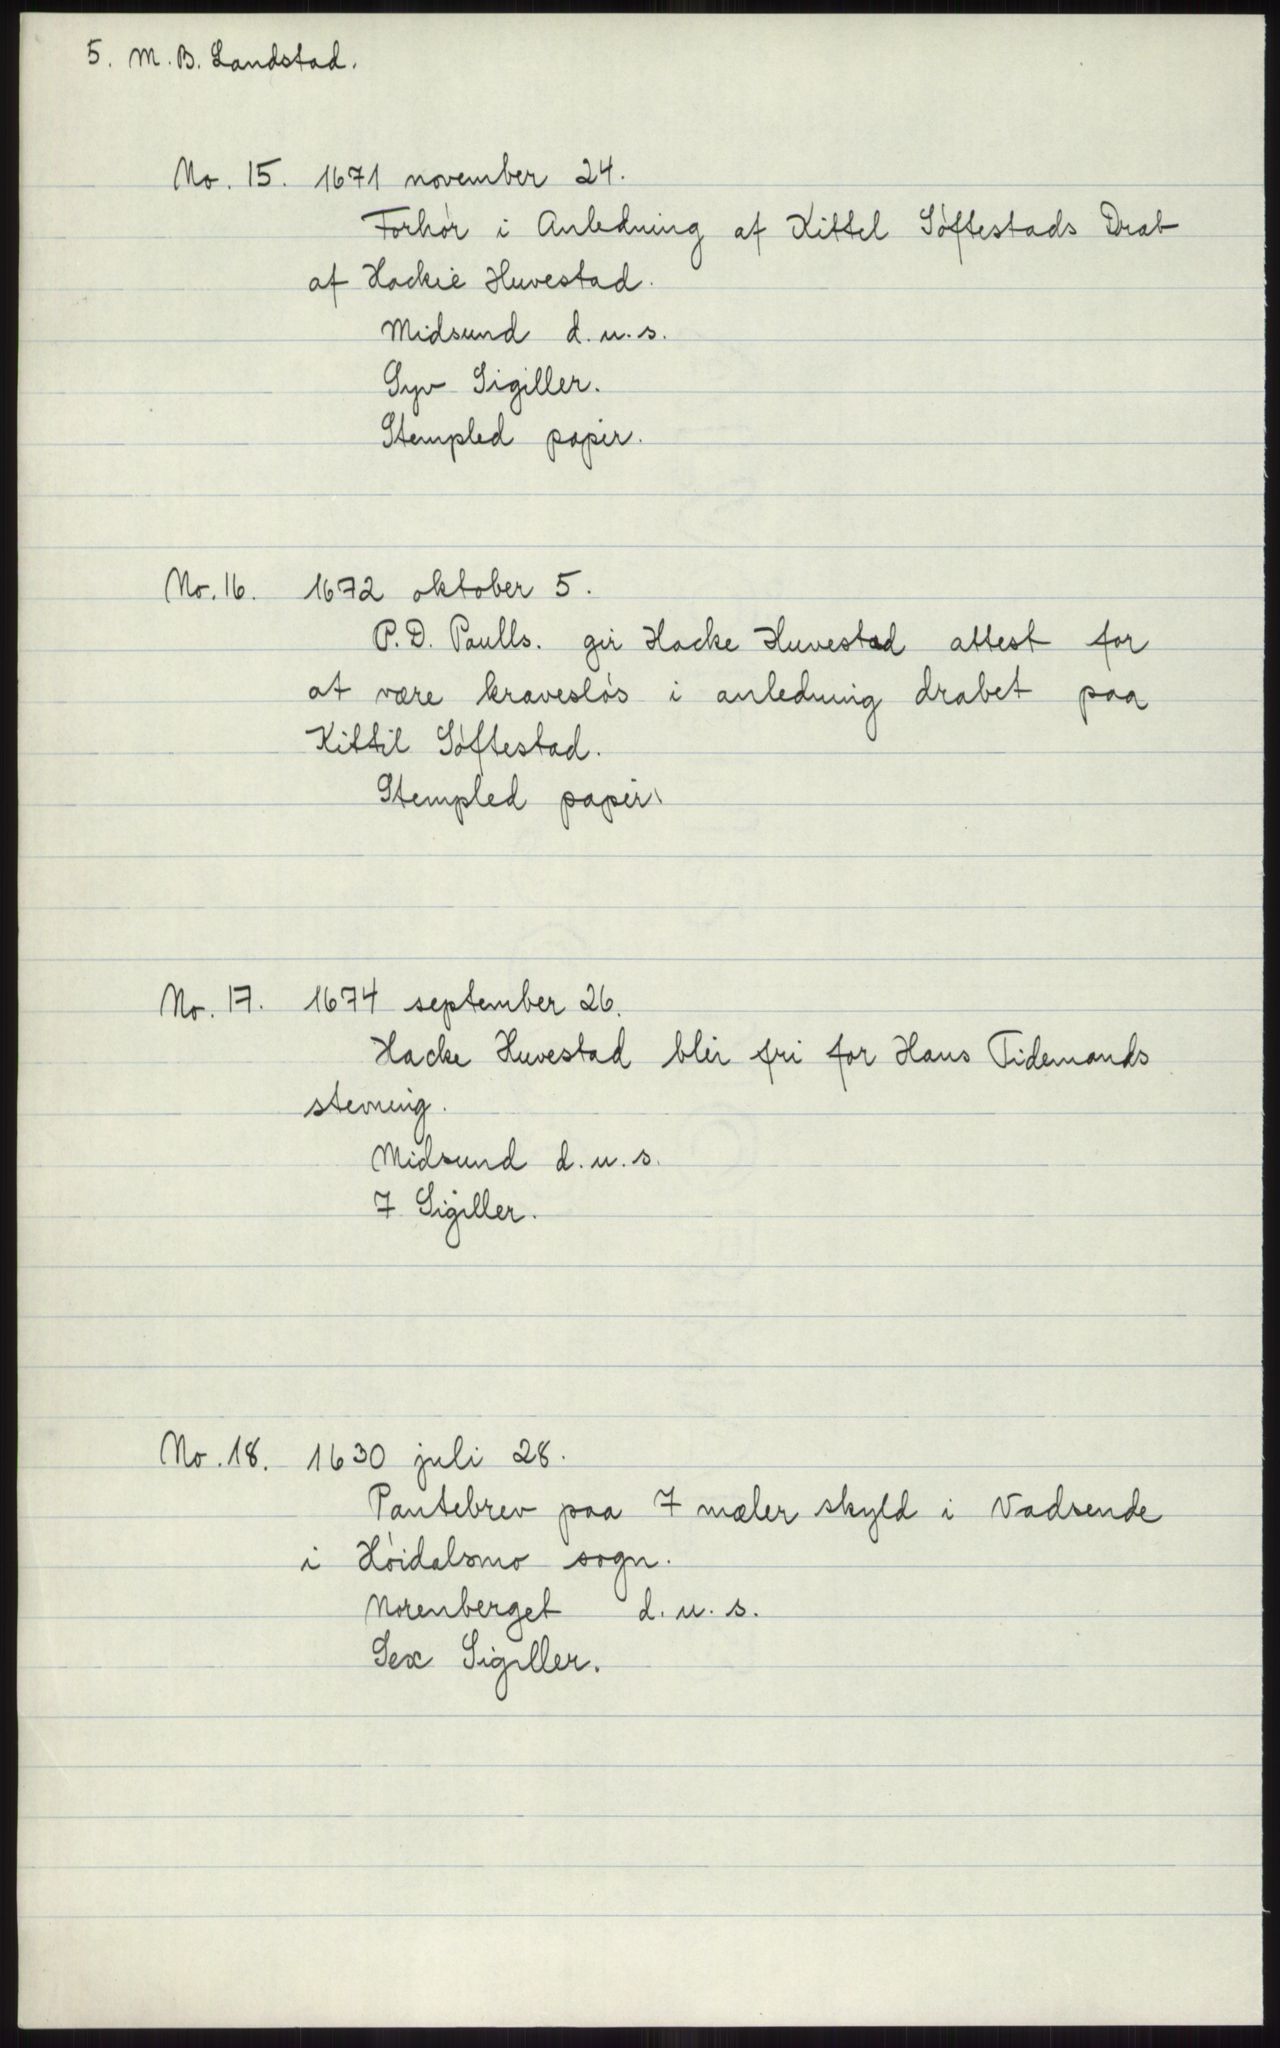 5. M. B. Landstad.
No. 15. 1671 november 24.
Forhór i Anledning af Kittel Sóftestads Drab
af Hackie Huvestad.
Midsund d. u. s.
Syv Sigiller.
Stempled papir.
No. 16. 1672 oktober 5.
P. D. Paulls. gir Hacke Huvestad attest for
at være kravesløs i anledning drabet paa
Kittil Sóftestad.
Stempled papir.
No. 17. 1674 september 26.
Hacke Huvestad blir fri for Hans Tidemands
stevning.
Midsund d. u. s.
7 Sigiller.
No. 18. 1630 juli 28.
Pantebrev paa 7 mæler skyld i Vadsende
i Hóidalsmo sogn.
Norenberget d. u. s.
Sex Sigiller.